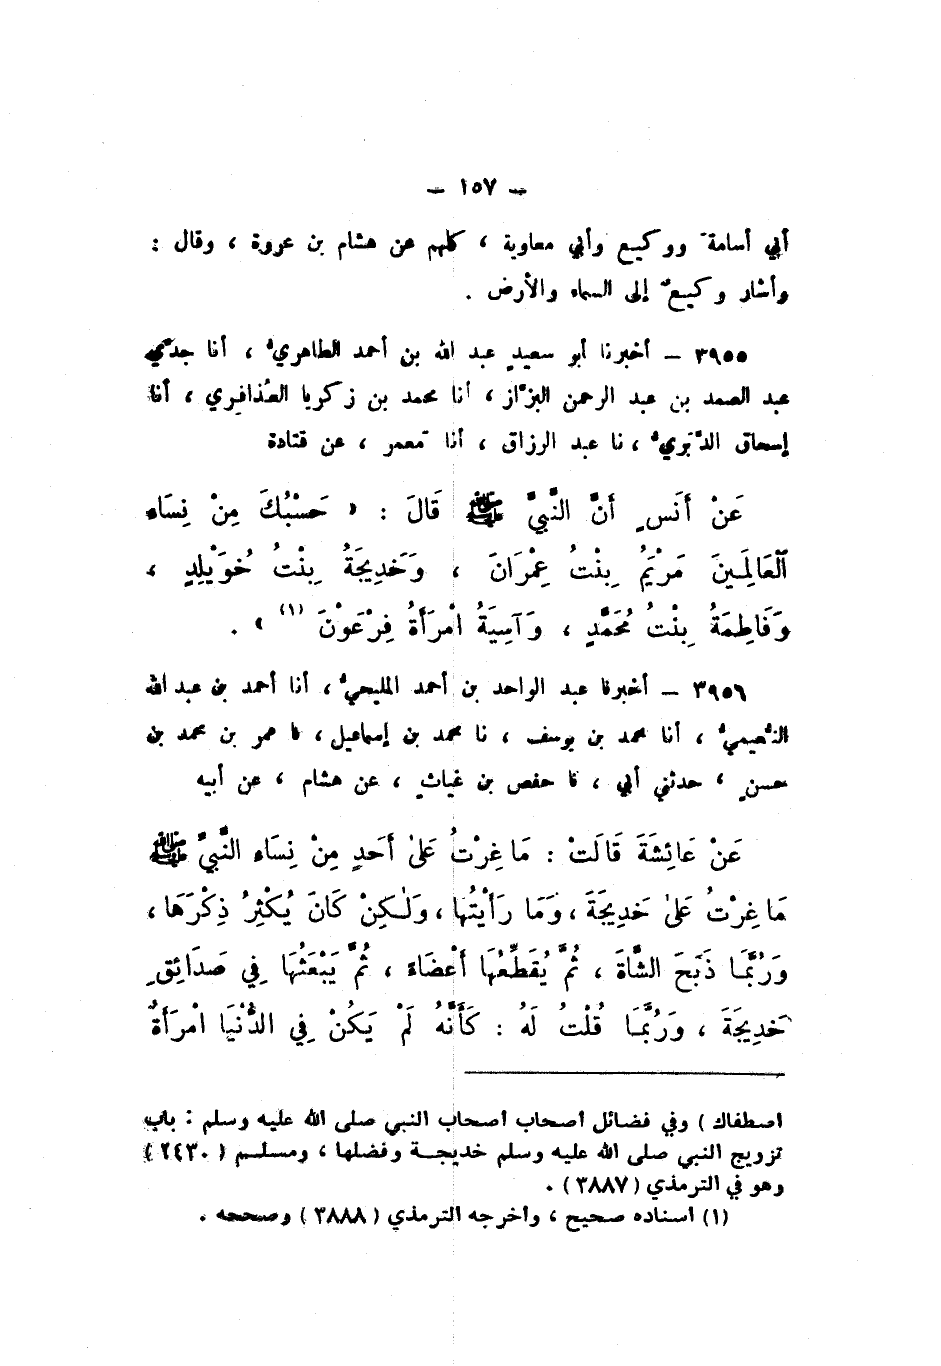 – ١٥٧ –
أبي أسامةَ ووكيع وأبي معاوية ، كلهم عن هشام بن عروة ، وقال :
وأشار وكيعٌ إلى السماء والأرض .
٣٩٥٥ – أخبرنا أبو سعيدٍ عبد الله بن أحمد الطاهريُّ ، أنا جدّي
عبد الصمد بن عبد الرحمن البزّاز ، أنا محمد بن زكريا العُذافري ، أنا
إسحاق الدَّبَريُّ ، نا عبد الرزاق ، أنا مَعمر ، عن قتادة
عَنْ أَنَسٍ أَنَّ النَّبِيَّ ﷺ قَالَ : « حَسْبُكَ مِنْ نِسَاءِ
ٱلْعَالَمِينَ مَرْيَمُ بِنْتُ عِمْرَانَ ، وَخَدِيجَةُ بِنْتُ خُوَيْلِدٍ ،
وَفَاطِمَةُ بِنْتُ مُحَمَّدٍ ، وَآسِيَةُ امْرَأَةُ فِرْعَوْنَ (١) » .
٣٩٥٦ – أخبرنا عبد الواحد بن أحمد المليحيُّ ، أنا أحمد بن عبد الله
النُّعيميُّ ، أنا محمد بن يوسف ، نا محمد بن إسماعيل ، نا عمر بن محمد بن
حسنٍ ، حدثني أبي ، نا حفص بن غياثٍ ، عن هشام ، عن أبيه
عَنْ عَائِشَةَ قَالَتْ : مَا غِرْتُ عَلَىٰ أَحَدٍ مِنْ نِسَاءِ النَّبِيِّ ﷺ
مَا غِرْتُ عَلَىٰ خَدِيجَةَ ، وَمَا رَأَيْتُهَا ، وَلَـٰكِنْ كَانَ يُكْثِرُ ذِكْرَهَا ،
وَرُبَّمَا ذَبَحَ الشَّاةَ ، ثُمَّ يُقَطِّعُهَا أَعْضَاءً ، ثُمَّ يَبْعَثُهَا فِي صَدَائِقِ
خَدِيجَةَ ، وَرُبَّمَا قُلْتُ لَهُ : كَأَنَّهُ لَمْ يَكُنْ فِي الدُّنْيَا امْرَأَةٌ
اصطفاك ) وفي فضائل أصحاب أصحاب النبي صلى الله عليه وسلم : باب
تزويج النبي صلى الله عليه وسلم خديجـة وفضلها ، ومسلـم ( ٢٤٣٠ )
وهو في الترمذي ( ٣٨٨٧ ) .
(١) اسناده صحيح ، وأخرجه الترمذي ( ٣٨٨٨ ) وصححه .